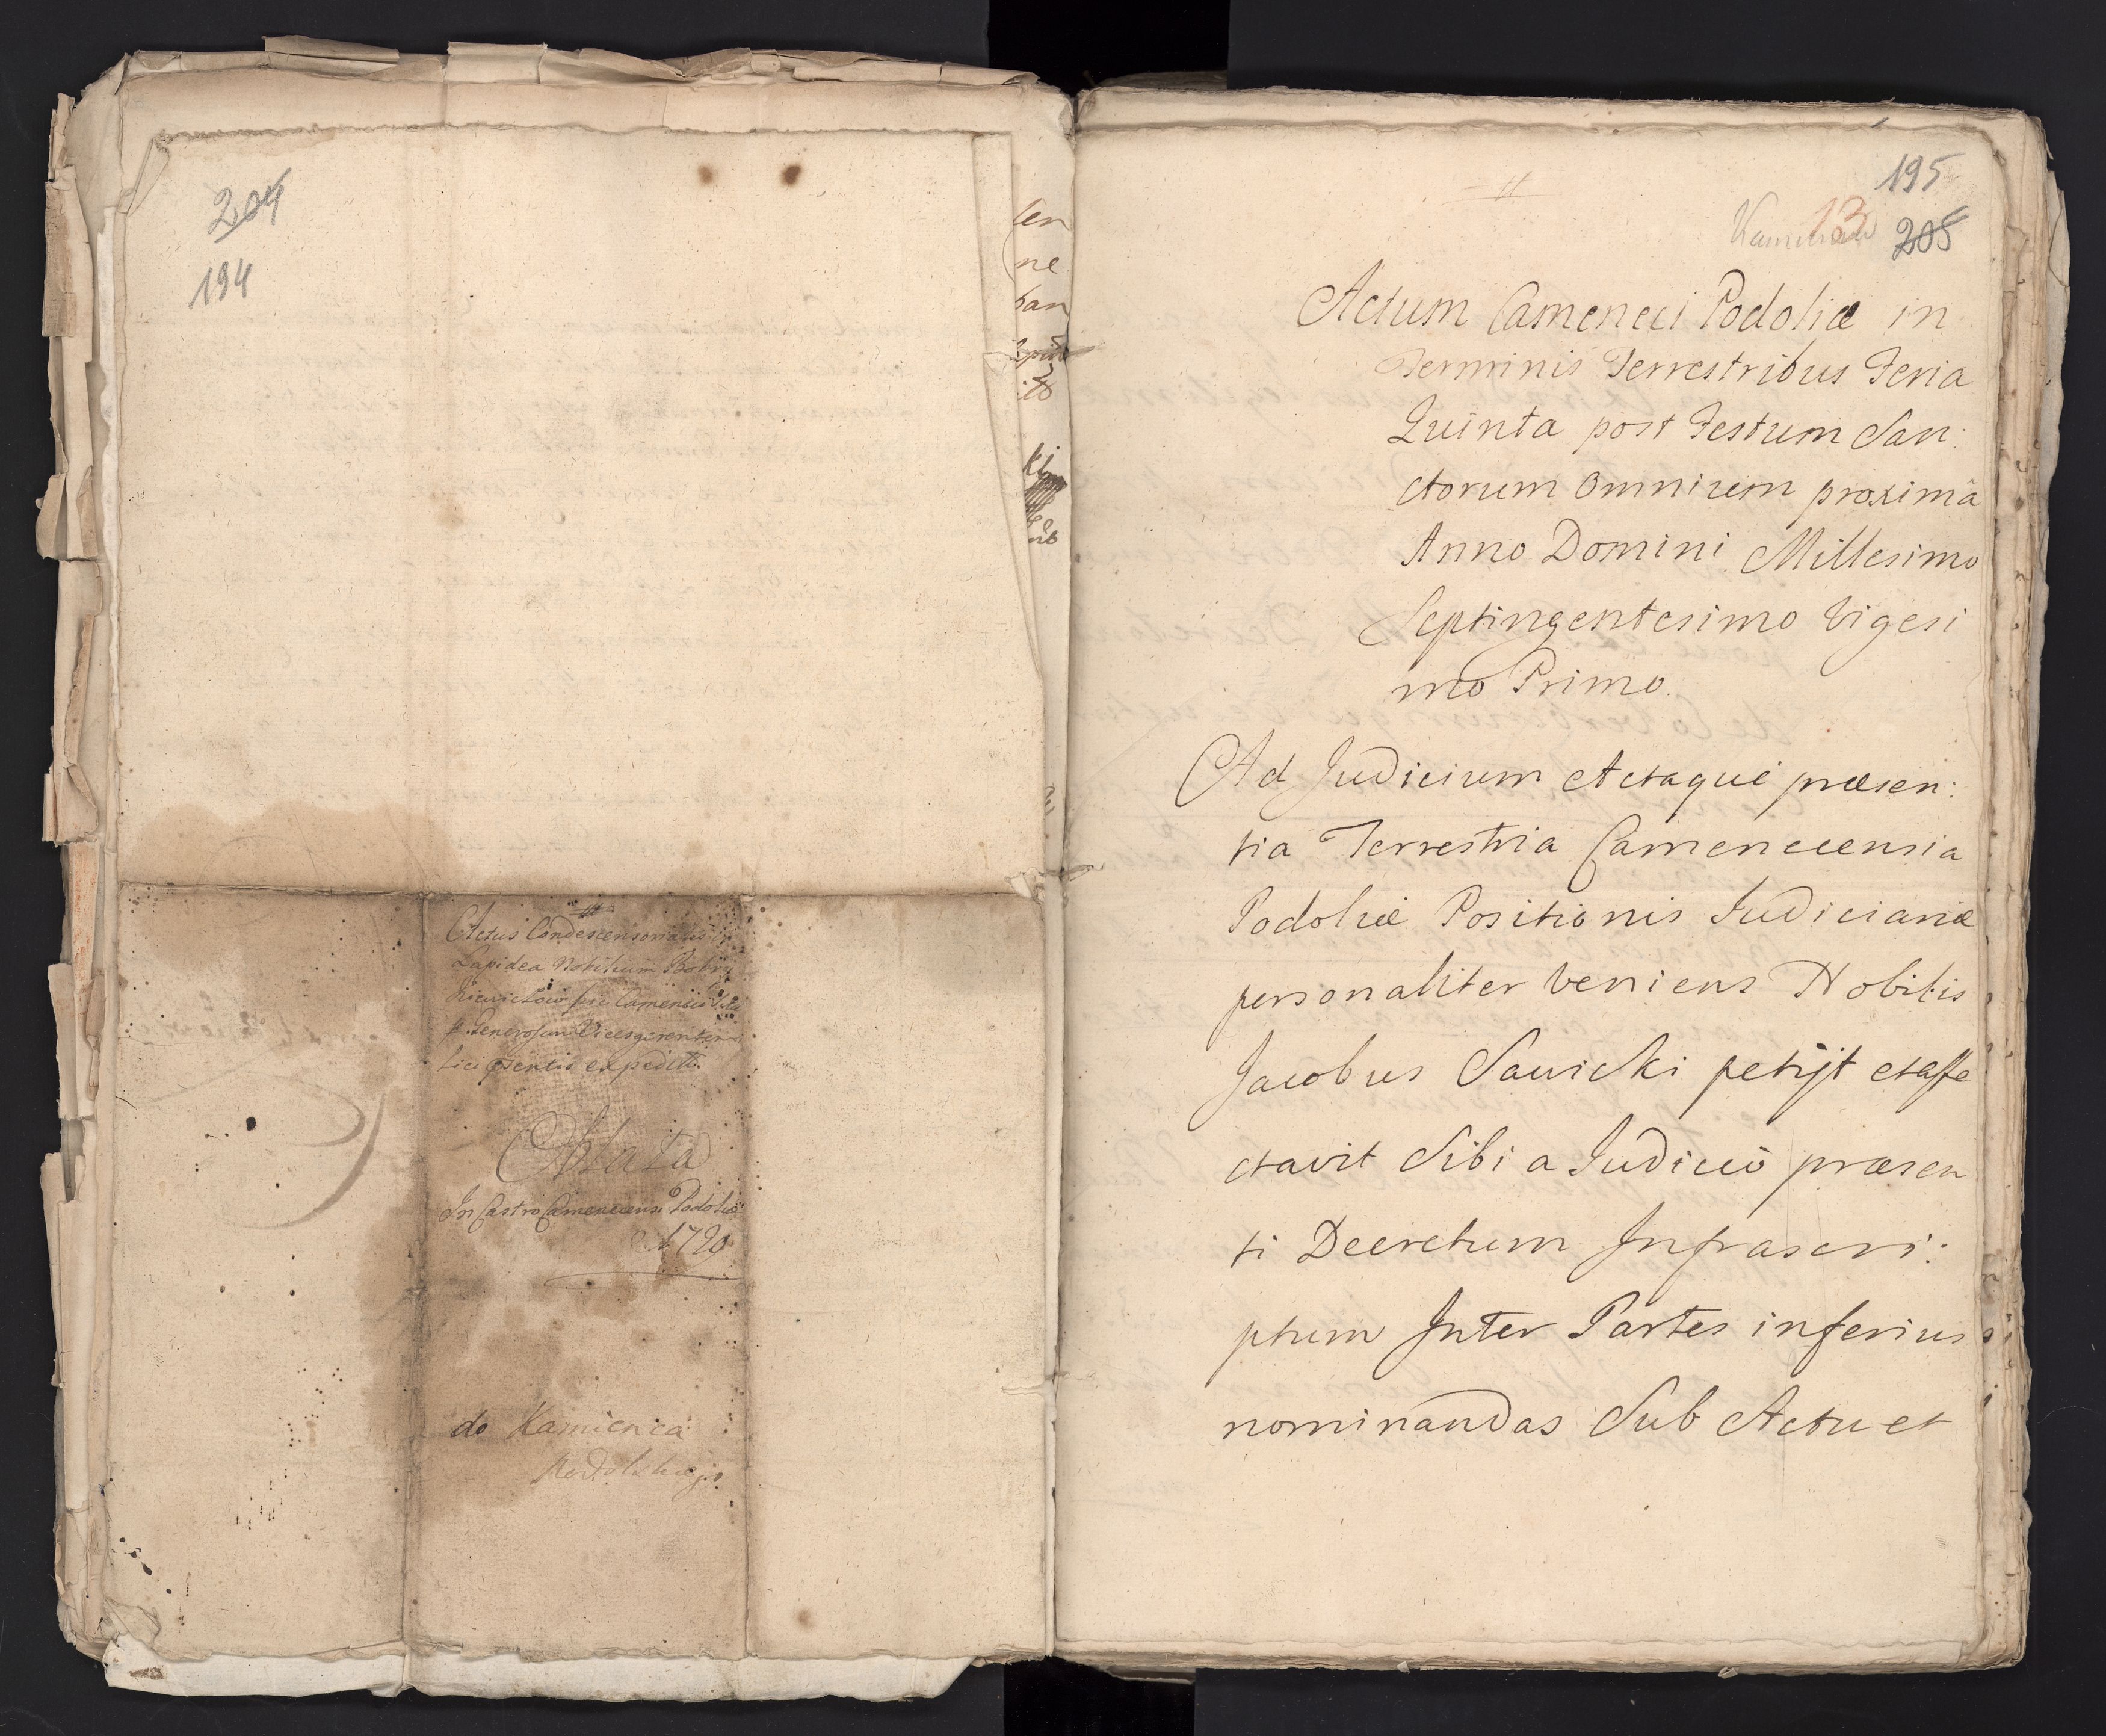 204
194
Actus Condescensorialis in
Lapidea Nobilium
Generosum Vicesgerentem
expeditus
Oblata
In Castro Camenecensi Podoliæ
A 1720
do Kamienca
Podolskiego
len
ne
ban
195
13
205
Actum Cameneci Podoliæ in
Terminis Terrestribus Feria
Quinta post Festum San:
ctorum Omnium proxima
Anno Domini Millesimo
Septingentesimo Vigesi
mo Primo.
Ad Judicium Actaque præsen:
tia Terrestria Camenecensia
Podoliæ Positionis Judiciariæ
personaliter veniens Nobilis
Jacobus Sawicki petijt etaffe
ctavit Sibi a Judicio præsen
ti Decretum Infrascri:
ptum Inter Partes inferius
nominandas Sub Actu et